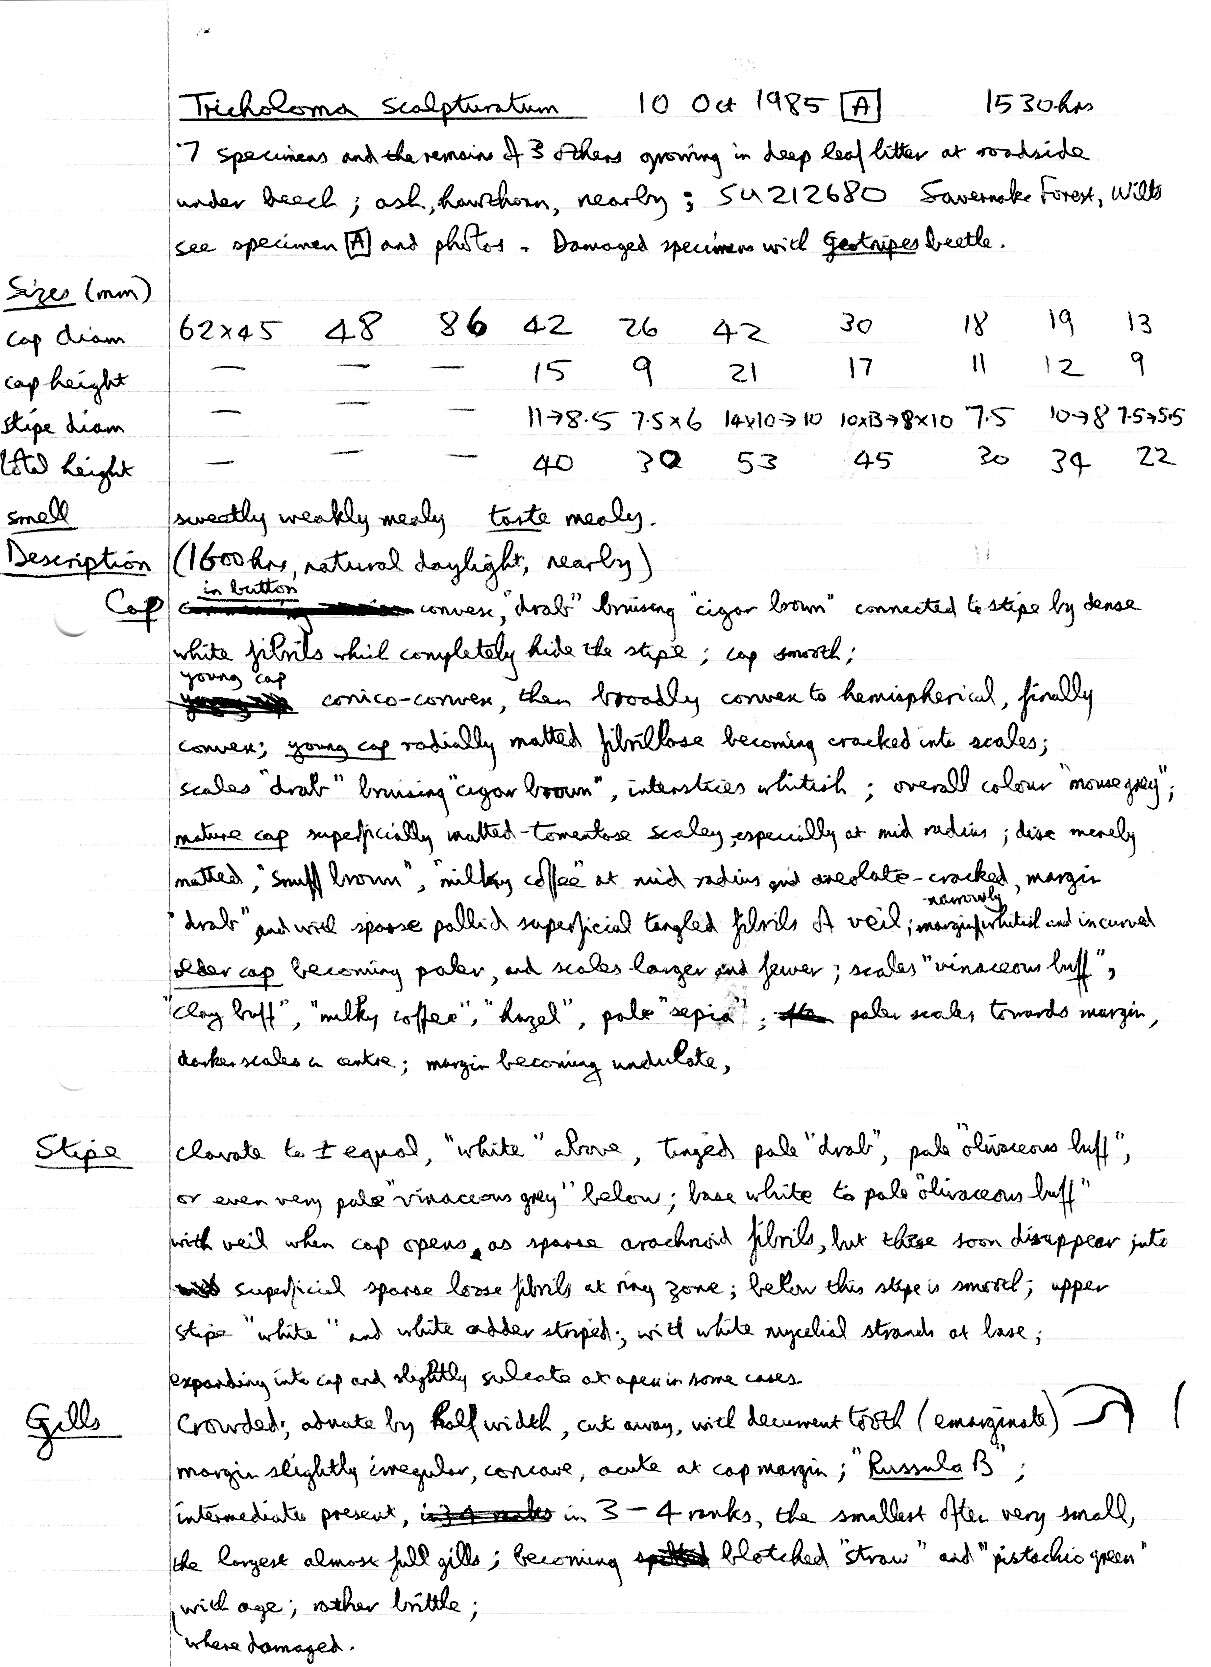 Tricholoma scalpturatum 10 Oct 1985 [A] 1530hrs
7 specimens and the remains of 3 others growing in deep leaf litter at roadside
under beech; ash, hawthorn, nearby; SU212680 Savernake Forest, Wilts
see specimen [A] and photos. Damaged specimens with Geotrupes beetle.
Sizes (mm)
cap diam 62x45 48 86 42 26 42 30 18 19 13
cap height — — — 15 9 21 17 11 12 9
stipe diam — — — 11→8.5 7.5x6 14x10→10 10x13→8x10 7.5 10→8 7.5→5.5
total height — — — 40 30 53 45 30 34 22
smell sweetly weakly mealy taste mealy.
Description (1600hrs, natural daylight, nearby)
in button
Cap convex, "drab" bruising "cigar brown" connected to stipe by dense
white fibrils which completely hide the stipe; cap smooth;
young cap
conico-convex, then broadly convex to hemispherical, finally
convex; young cap radially matted fibrillose becoming cracked into scales;
scales "drab" bruising "cigar brown", interstices whitish; overall colour "mouse grey";
mature cap superficially matted-tomentose scaley, especially at mid radius; disc merely
matted, "snuff brown", "milky coffee" at mid radius and areolate-cracked, margin
narrowly
"drab" and with sparse pallid superficial tangled fibrils of veil; margin whitish and incurved
older cap becoming paler, and scales larger and fewer; scales "vinaceous buff",
"clay buff", "milky coffee", "hazel", pale "sepia"; paler scales towards margin,
darker scales in centre; margin becoming undulate,
Stipe clavate to ± equal, "white" above, tinged pale "drab", pale "olivaceous buff",
or even very pale "vinaceous grey" below; base white to pale "olivaceous buff"
with veil when cap opens, as sparse arachnoid fibrils, but these soon disappear into
superficial sparse loose fibrils at ring zone; below this stipe is smooth; upper
stipe "white" and white adder striped; with white mycelial strands at base;
expanding into cap and slightly sulcate at apex in some cases.
Gills Crowded; adnate by half width, cut away, with decurrent tooth (emarginate)
margin slightly irregular, concave, acute at cap margin; "Russula B";
intermediates present, in 3-4 ranks, the smallest often very small,
the largest almost full gills; becoming blotched "straw" and "pistachio green"
with age; rather brittle;
where damaged.